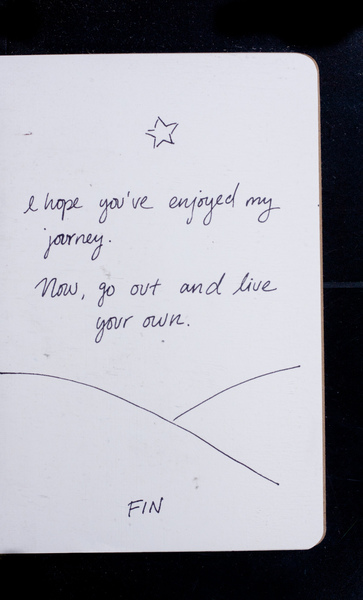 I hope you've enjoyed my
journey.
Now, go out and live
your own.
FIN